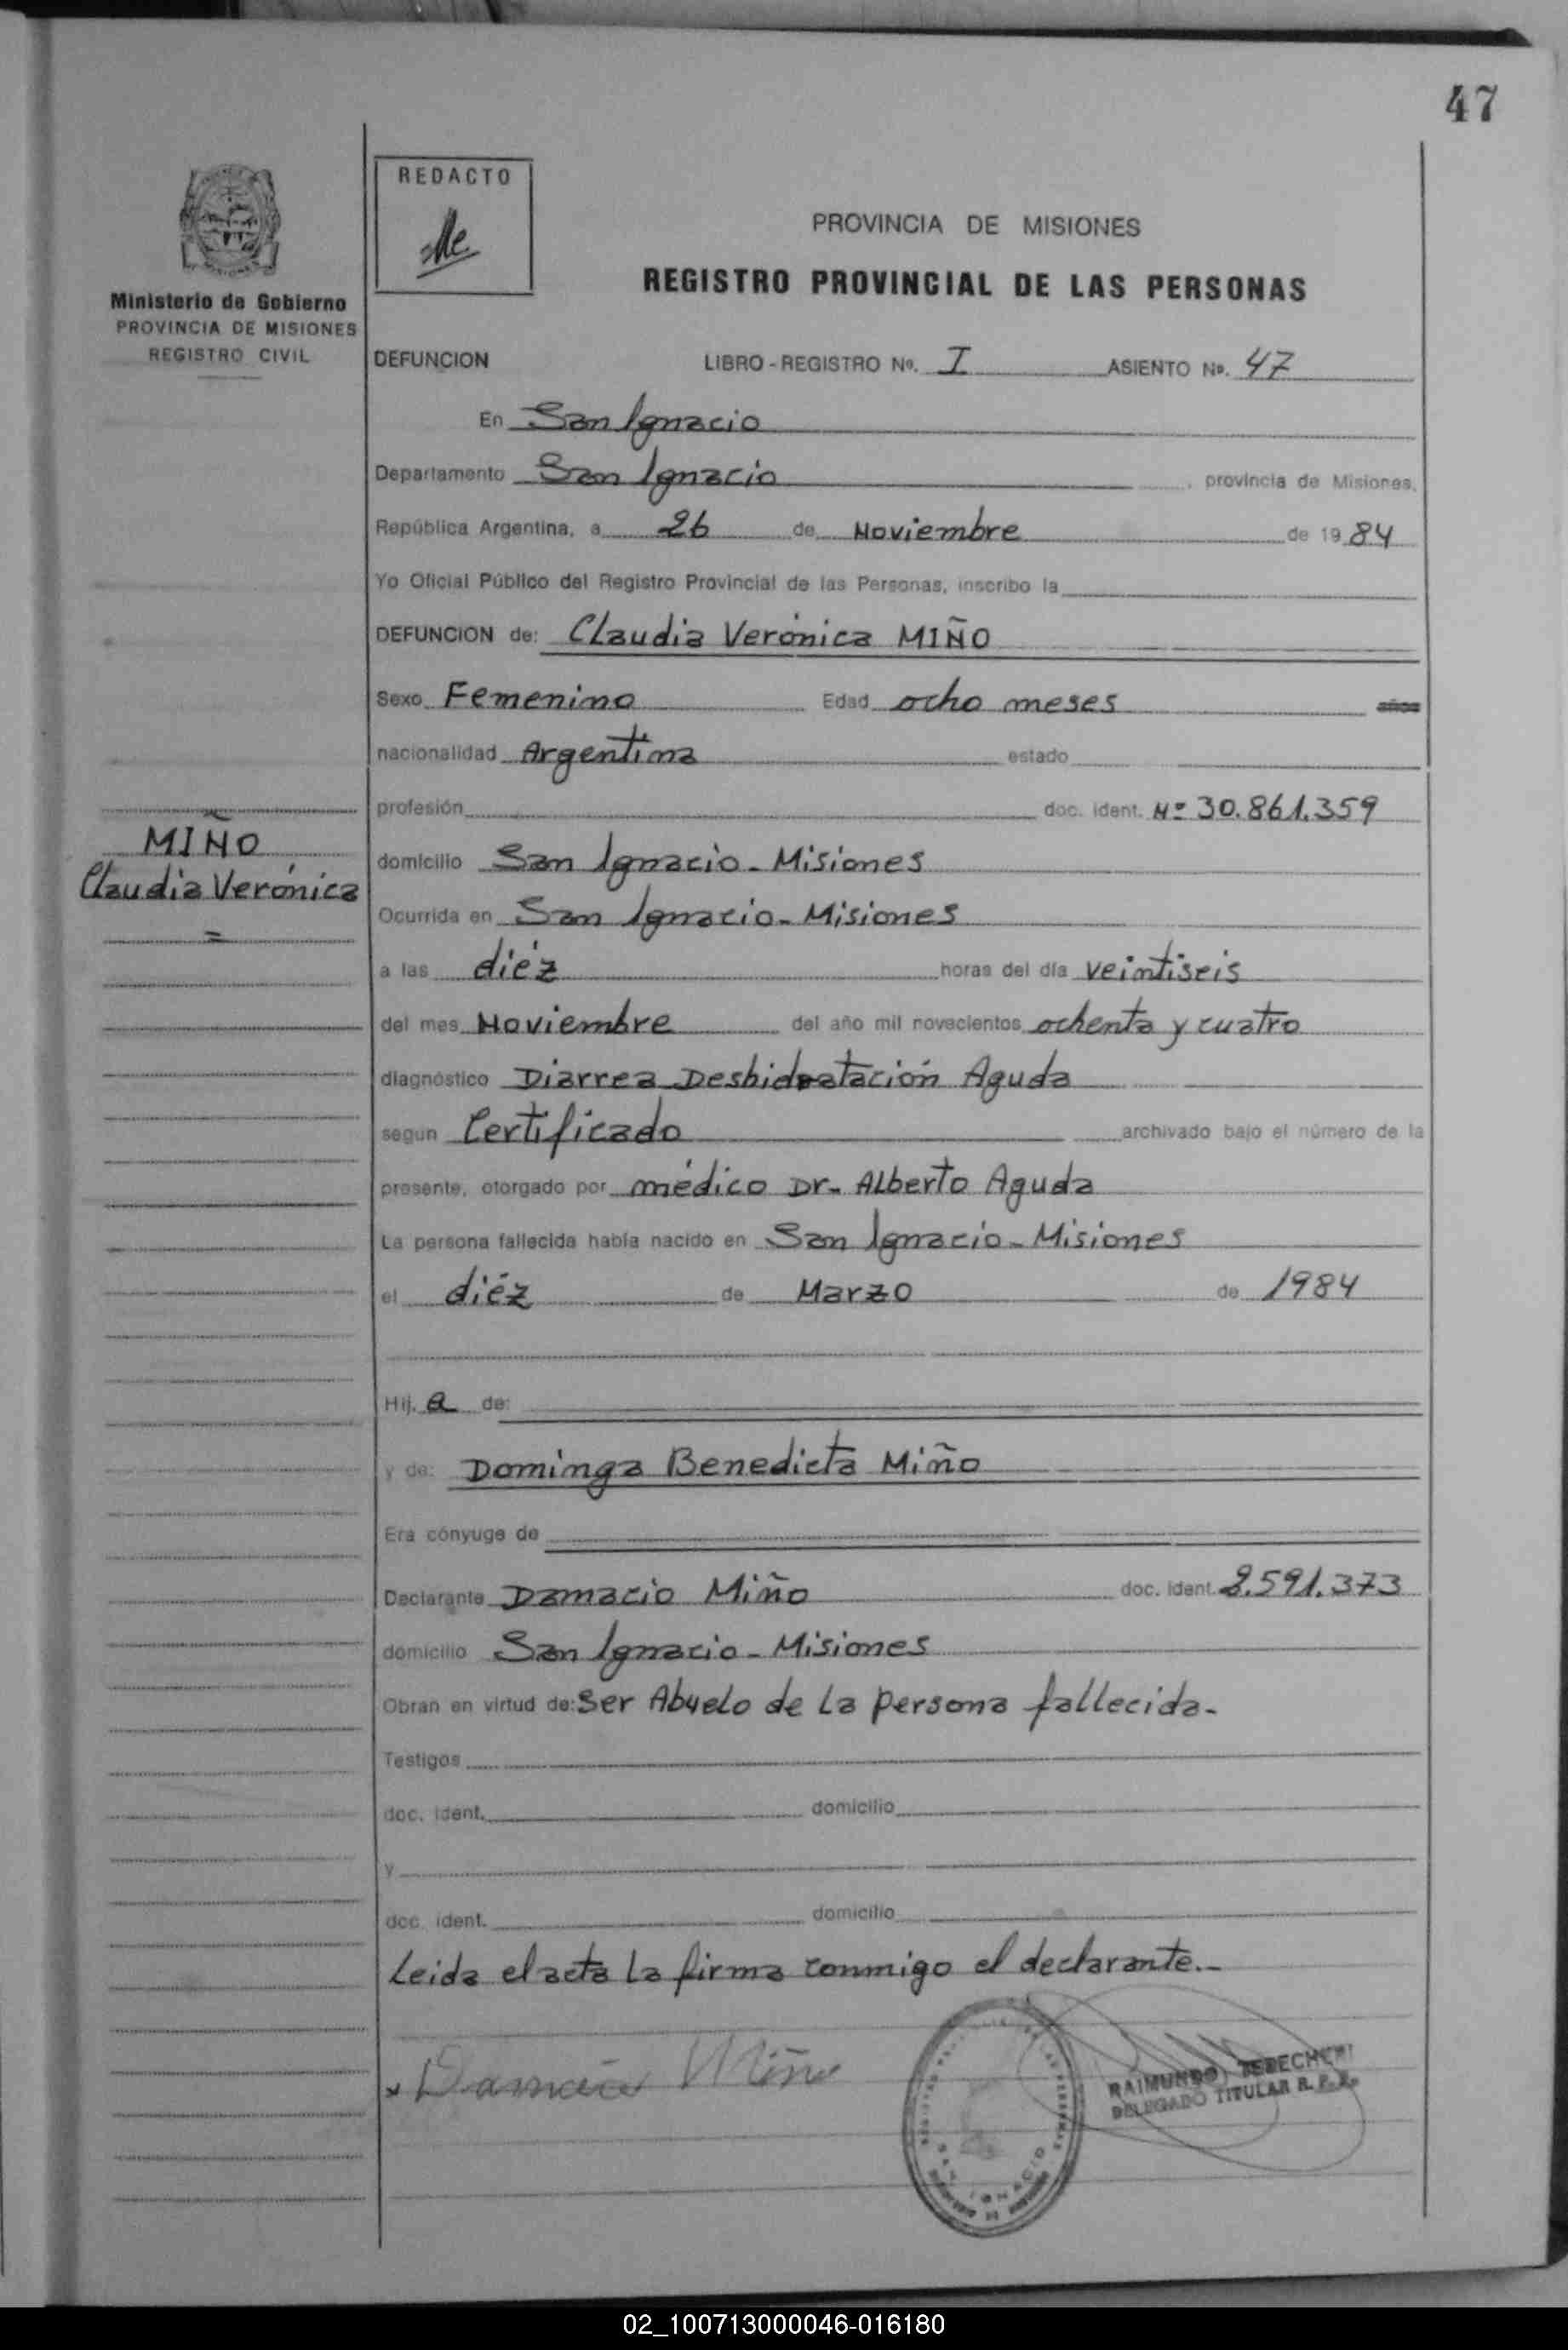 47
REDACTO
PROVINCIA DE MISIONES
REGISTRO PROVINCIAL DE LAS PERSONAS
Ministerio de Gobierno
PROVINCIA DE MISIONES
REGISTRO CIVIL
DEFUNCION LIBRO - REGISTRO Nº. I ASIENTO Nº. 47
En San Ignacio
Departamento San Ignacio, provincia de Misiones,
República Argentina, a 26 de Noviembre de 1984
Yo Oficial Público del Registro Provincial de las Personas, inscribo la
DEFUNCION de: Claudia Verónica MIÑO
Sexo Femenino Edad ocho meses años
nacionalidad Argentina estado
profesión doc. ident. Nº 30.861.359
MIÑO
Claudia Verónica
=
domicilio San Ignacio - Misiones
Ocurrida en San Ignacio - Misiones
a las diéz horas del día veintiseis
del mes Noviembre del año mil novecientos ochenta y cuatro
diagnóstico Diarrea Deshidratación Aguda
segun Certificado archivado bajo el número de la
presente, otorgado por médico Dr. Alberto Aguda
La persona fallecida había nacido en San Ignacio - Misiones
el diéz de Marzo de 1984
Hij. a de:
y de: Dominga Benedicta Miño
Era cónyuge de
Declarante Damacio Miño doc. ident. 2.591.373
domicilio San Ignacio - Misiones
Obran en virtud de: Ser Abuelo de la persona fallecida -
Testigos
doc. ident. domicilio
y
doc. ident. domicilio
Leida el acta la firma conmigo el declarante. -
Miño
RAIMUNDO
DELEGADO TITULAR R. P. P.
SAN IGNACIO
02_100713000046-016180